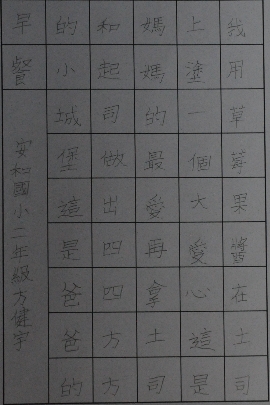 我用草莓果醬在土司
上塗一個大愛心這是
媽媽的最愛再拿土司
和起司做出四四方方
的小城堡這是爸爸的
早餐
安和國小二年級方健宇